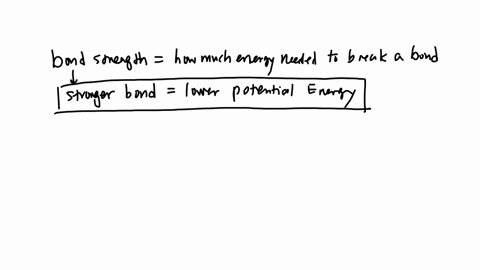 bond strength = how much energy needed to break a bond
stronger bond = lower potential Energy